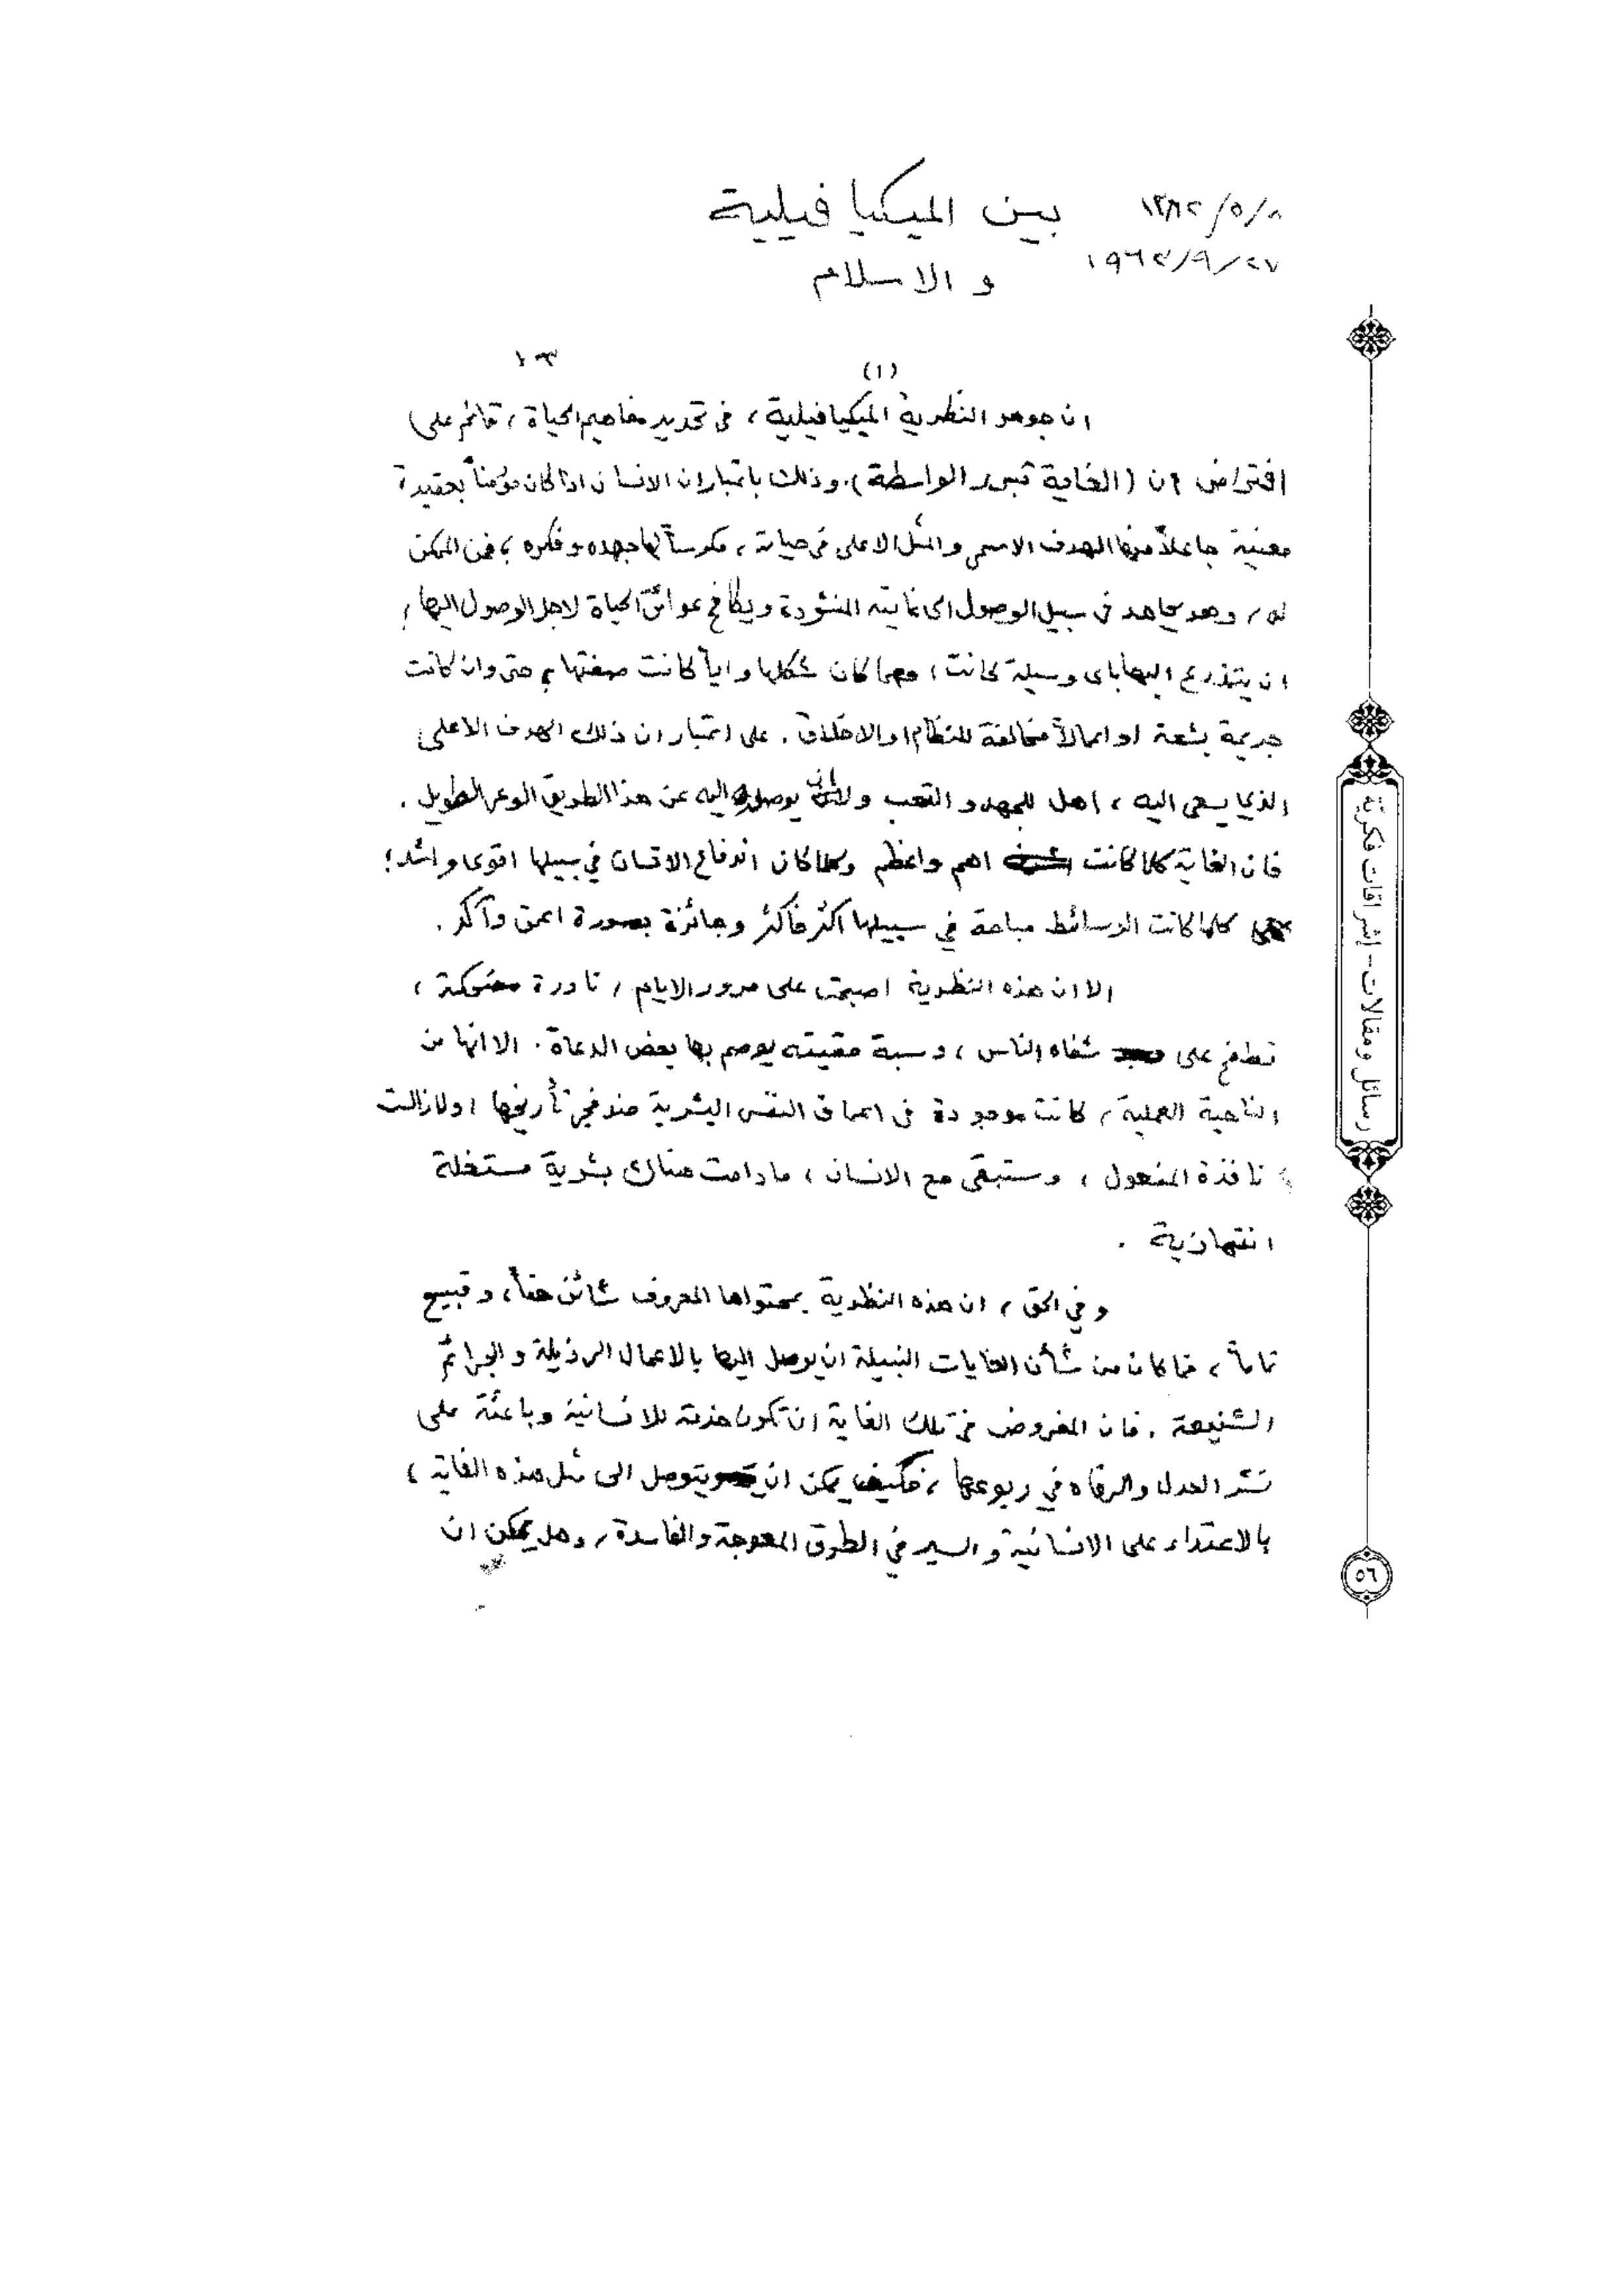 بين الميكيافيلية
و الاسلام
١٣٨٢/٥/٨
١٩٦٢/٩/٢٧
١٣
(١)
ان جوهر النظرية الميكيافيلية، في تحديد مفاهيم الحياة، قائم على
افتراض ان (الغاية تبرر الواسطة). وذلك باعتبار ان الانسان اذا كان مؤمناً بعقيدة
معينية جاعلاً منها الهدف الاسمى والمثل الاعلى في حياته، مكرساً لها جهده وفكره، فمن الممكن
له، وهو يجاهد في سبيل الوصول الى غايته المنشودة ويكافح عوائق الحياة لاجل الوصول اليها،
ان يتذرع اليها باي وسيلة كانت، مهما كان شكلها واياً كانت صفتها، حتى وان كانت
جريمة بشعة او اعمالاً مخالفة للنظام او الاخلاق. على اعتبار ان ذلك الهدف الاعلى
الذي يسعى اليه، اهل للجهد و التعب ولان يوصل اليه عن هذا الطريق الوعر الطويل.
فان الغاية كلما كانت اهم واعظم وكلما كان اندفاع الانسان في سبيلها اقوى واشد؛
كلما كانت الوسائط مباحة في سبيلها اكثر فاكثر وجائزة بصورة اعمق وآكد.
الا ان هذه النظرية اصبحت على مرور الايام، نادرة مضحكة،
تطفح على شفاه الناس، وسبة مقيتة يوصم بها بعض الدعاة. الا انها من
الناحية العملية، كانت موجودة في اعماق النفس البشرية منذ فجر تأريخها، ولازالت
نافذة المفعول، وستبقى مع الانسان، مادامت هناك بشرية مستغلة
انتهازية.
و في الحق، ان هذه النظرية بمحتواها المعروف شائن حقاً، وقبيح
تماماً، فما كان من شأن الغايات النبيلة ان يوصل اليها بالاعمال الرذيلة و الجرائم
الشنيعة. فان المفروض في تلك الغاية ان تكون خدمة للانسانية وباعثة على
نشر العدل والرفاه في ربوعها، فكيف يمكن ان يتوصل الى مثل هذه الغاية،
بالاعتداء على الانسانية و السير في الطرق المعوجة والفاسدة، وهل يمكن ان
رسائل ومقالات - إشراقات فكرية
٥٦